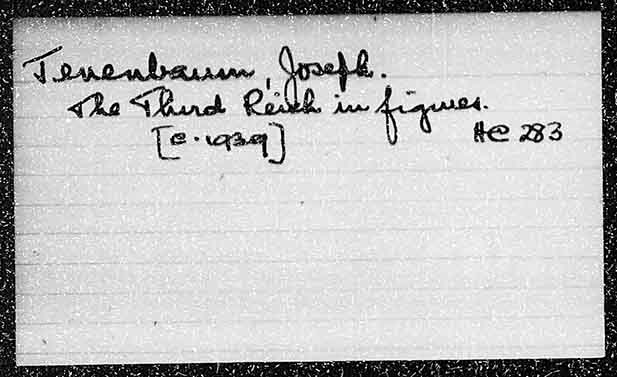 Tenenbaum, Joseph.
The Third Reich in figures.
[c. 1939] HC 283